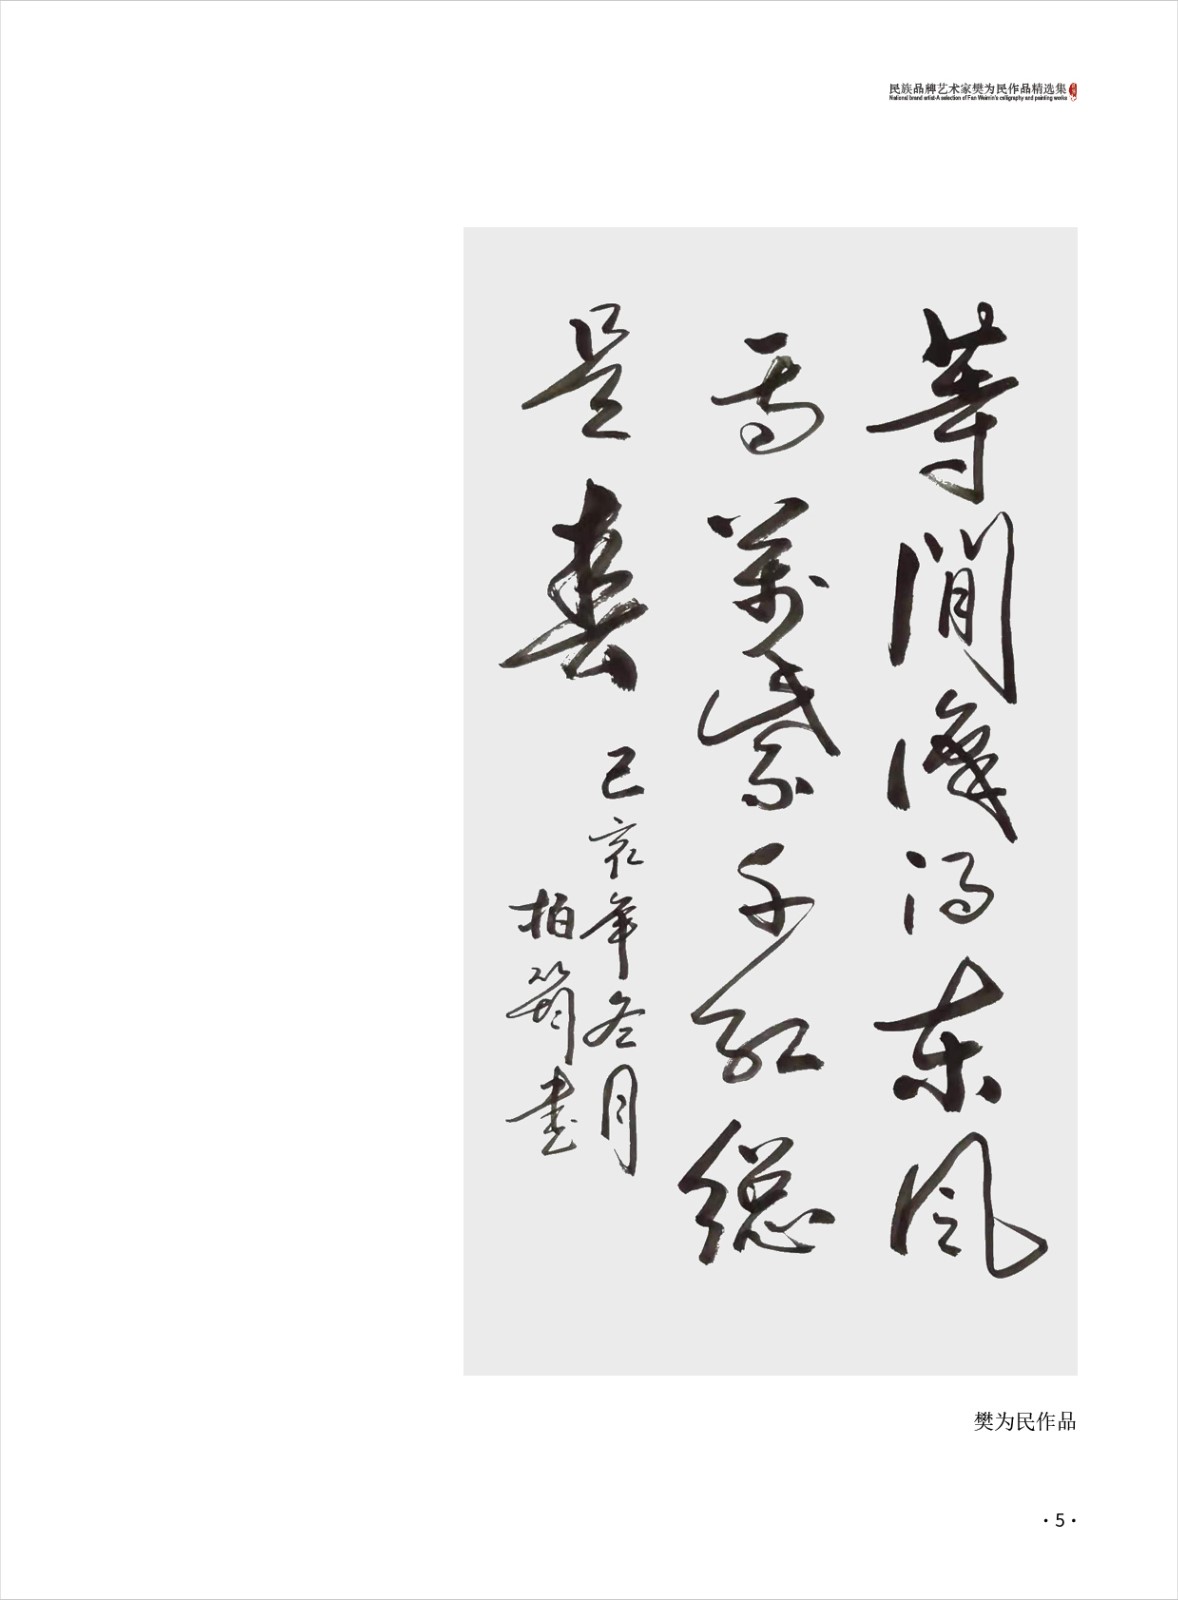 民族品牌艺术家樊为民作品精选集
National brand artist-A selection of Fan Weimin's calligraphy and painting works
等閒識得东风
面萬紫千红總
是春
己亥年冬月
柏書
樊为民作品
·5·